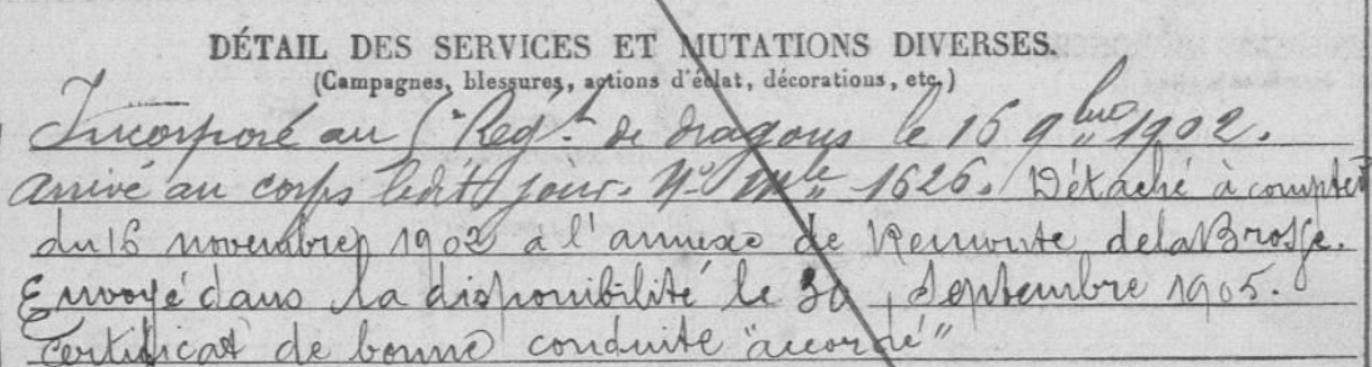 DÉTAIL DES SERVICES ET MUTATIONS DIVERSES.
(Campagnes, blessures, actions d'éclat, décorations, etc.)
Incorporé au Régt de dragons le 16 9bre 1902.
arrivé au corps ledit jour. No Mle 1626. Détaché à compter
du 16 novembre 1902 à l'annexe de Remonte de la Brosse.
Envoyé dans la disponibilité le 30 Septembre 1905.
Certificat de bonne conduite "accordé"